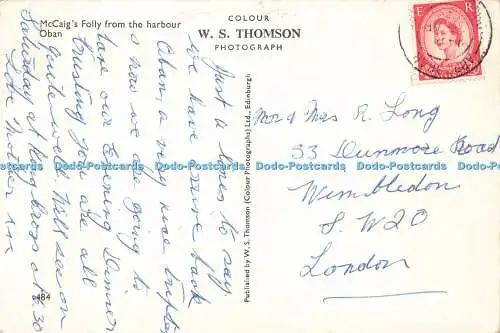 McCaig's Folly from the harbour
Oban
COLOUR
W. S. THOMSON
PHOTOGRAPH
Published by W. S. Thomson (Colour Photographs) Ltd., Edinburgh
484
E R
Just a line to say
we have arrived back
Oban, a very nice trip
& now we are going to
have our Evening Dinner
trusting you are all
quite well. Will see you
Saturday at King Cross at 4.30
Love Mother xxx
Mr & Mrs R. Long
33 Dunmore Road
Wimbledon
S. W 20
London
Dodo-Postcards Dodo-Postcards Dodo-Postcards Dodo-Postcards Dodo-Postcards